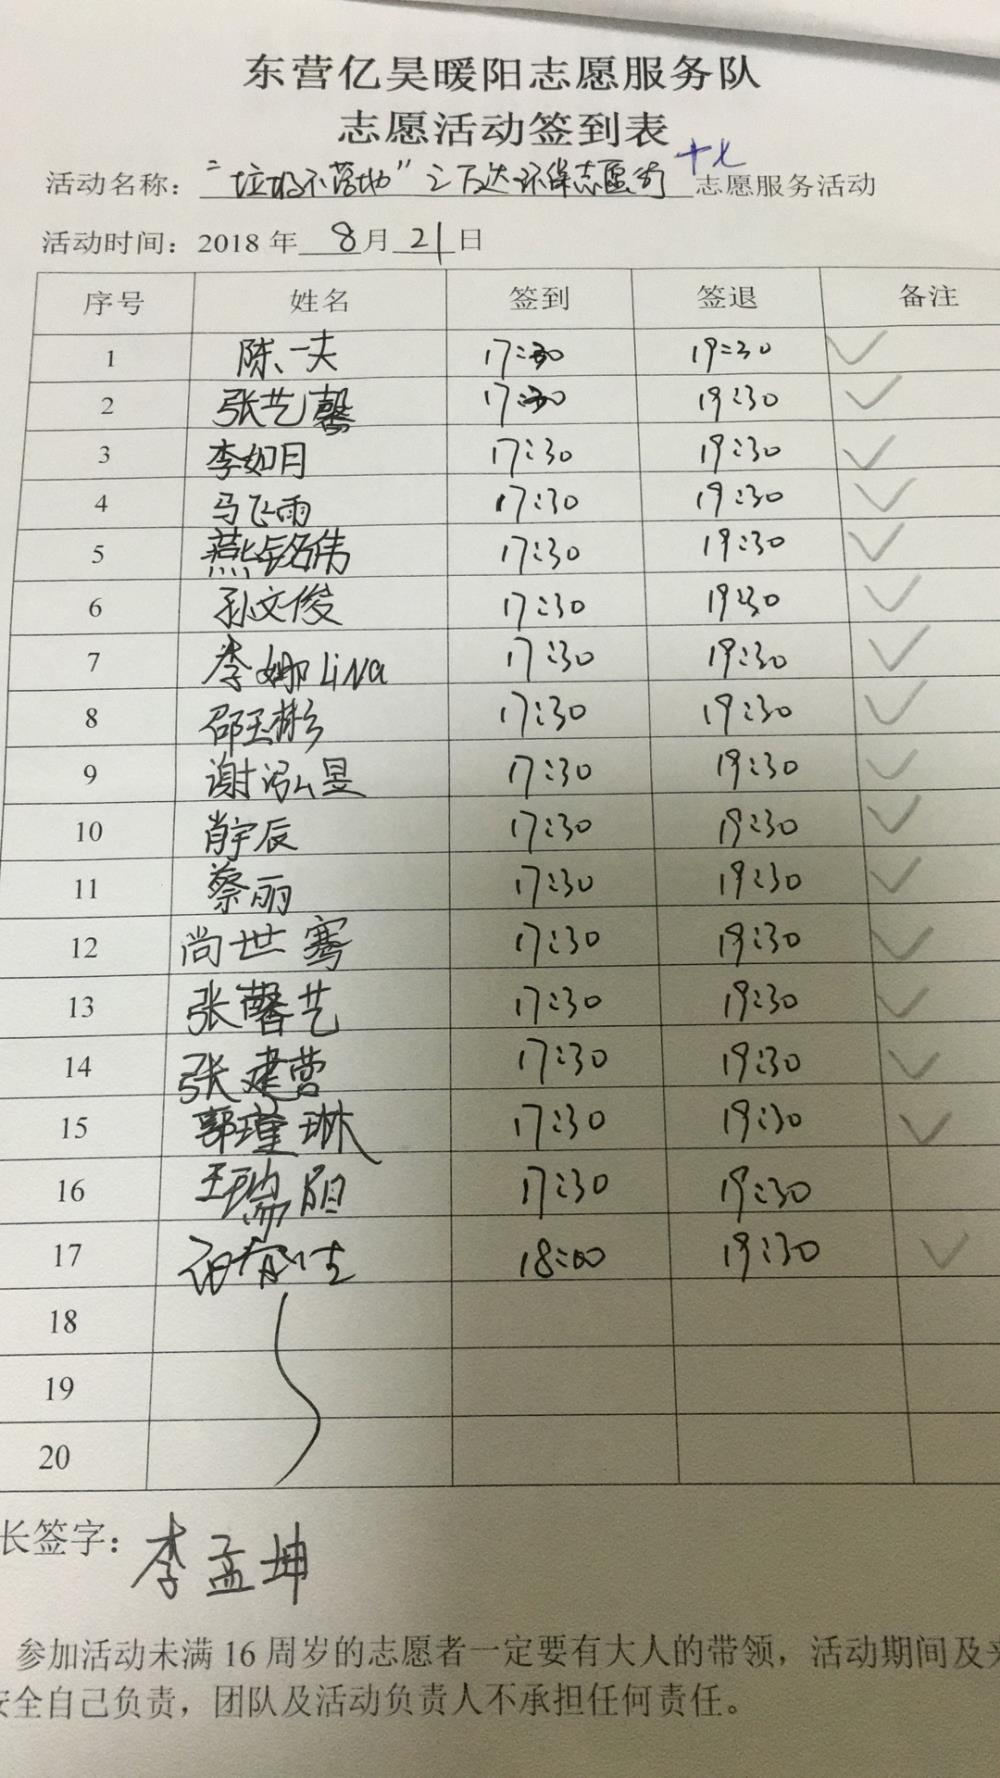 东营亿昊暖阳志愿服务队
志愿活动签到表
活动名称："垃圾不落地"之万达环保志愿街十七志愿服务活动
活动时间：2018年8月21日
序号 姓名 签到 签退 备注
1 陈一夫 17:30 19:30 ✓
2 张艺馨 17:30 19:30 ✓
3 李如月 17:30 19:30 ✓
4 马飞雨 17:30 19:30 ✓
5 燕铭伟 17:30 19:30 ✓
6 孙文俊 17:30 19:30 ✓
7 李娜 liNa 17:30 19:30 ✓
8 邵玉彬 17:30 19:30 ✓
9 谢泓昱 17:30 19:30 ✓
10 肖宇辰 17:30 19:30 ✓
11 蔡丽 17:30 19:30 ✓
12 尚世骞 17:30 19:30 ✓
13 张馨艺 17:30 19:30 ✓
14 张建营 17:30 19:30 ✓
15 郭瑾琳 17:30 19:30 ✓
16 王瑞 17:30 19:30
17 18:00 19:30 ✓
18
19
20
长签字：李孟坤
参加活动未满16周岁的志愿者一定要有大人的带领，活动期间及来
安全自己负责，团队及活动负责人不承担任何责任。